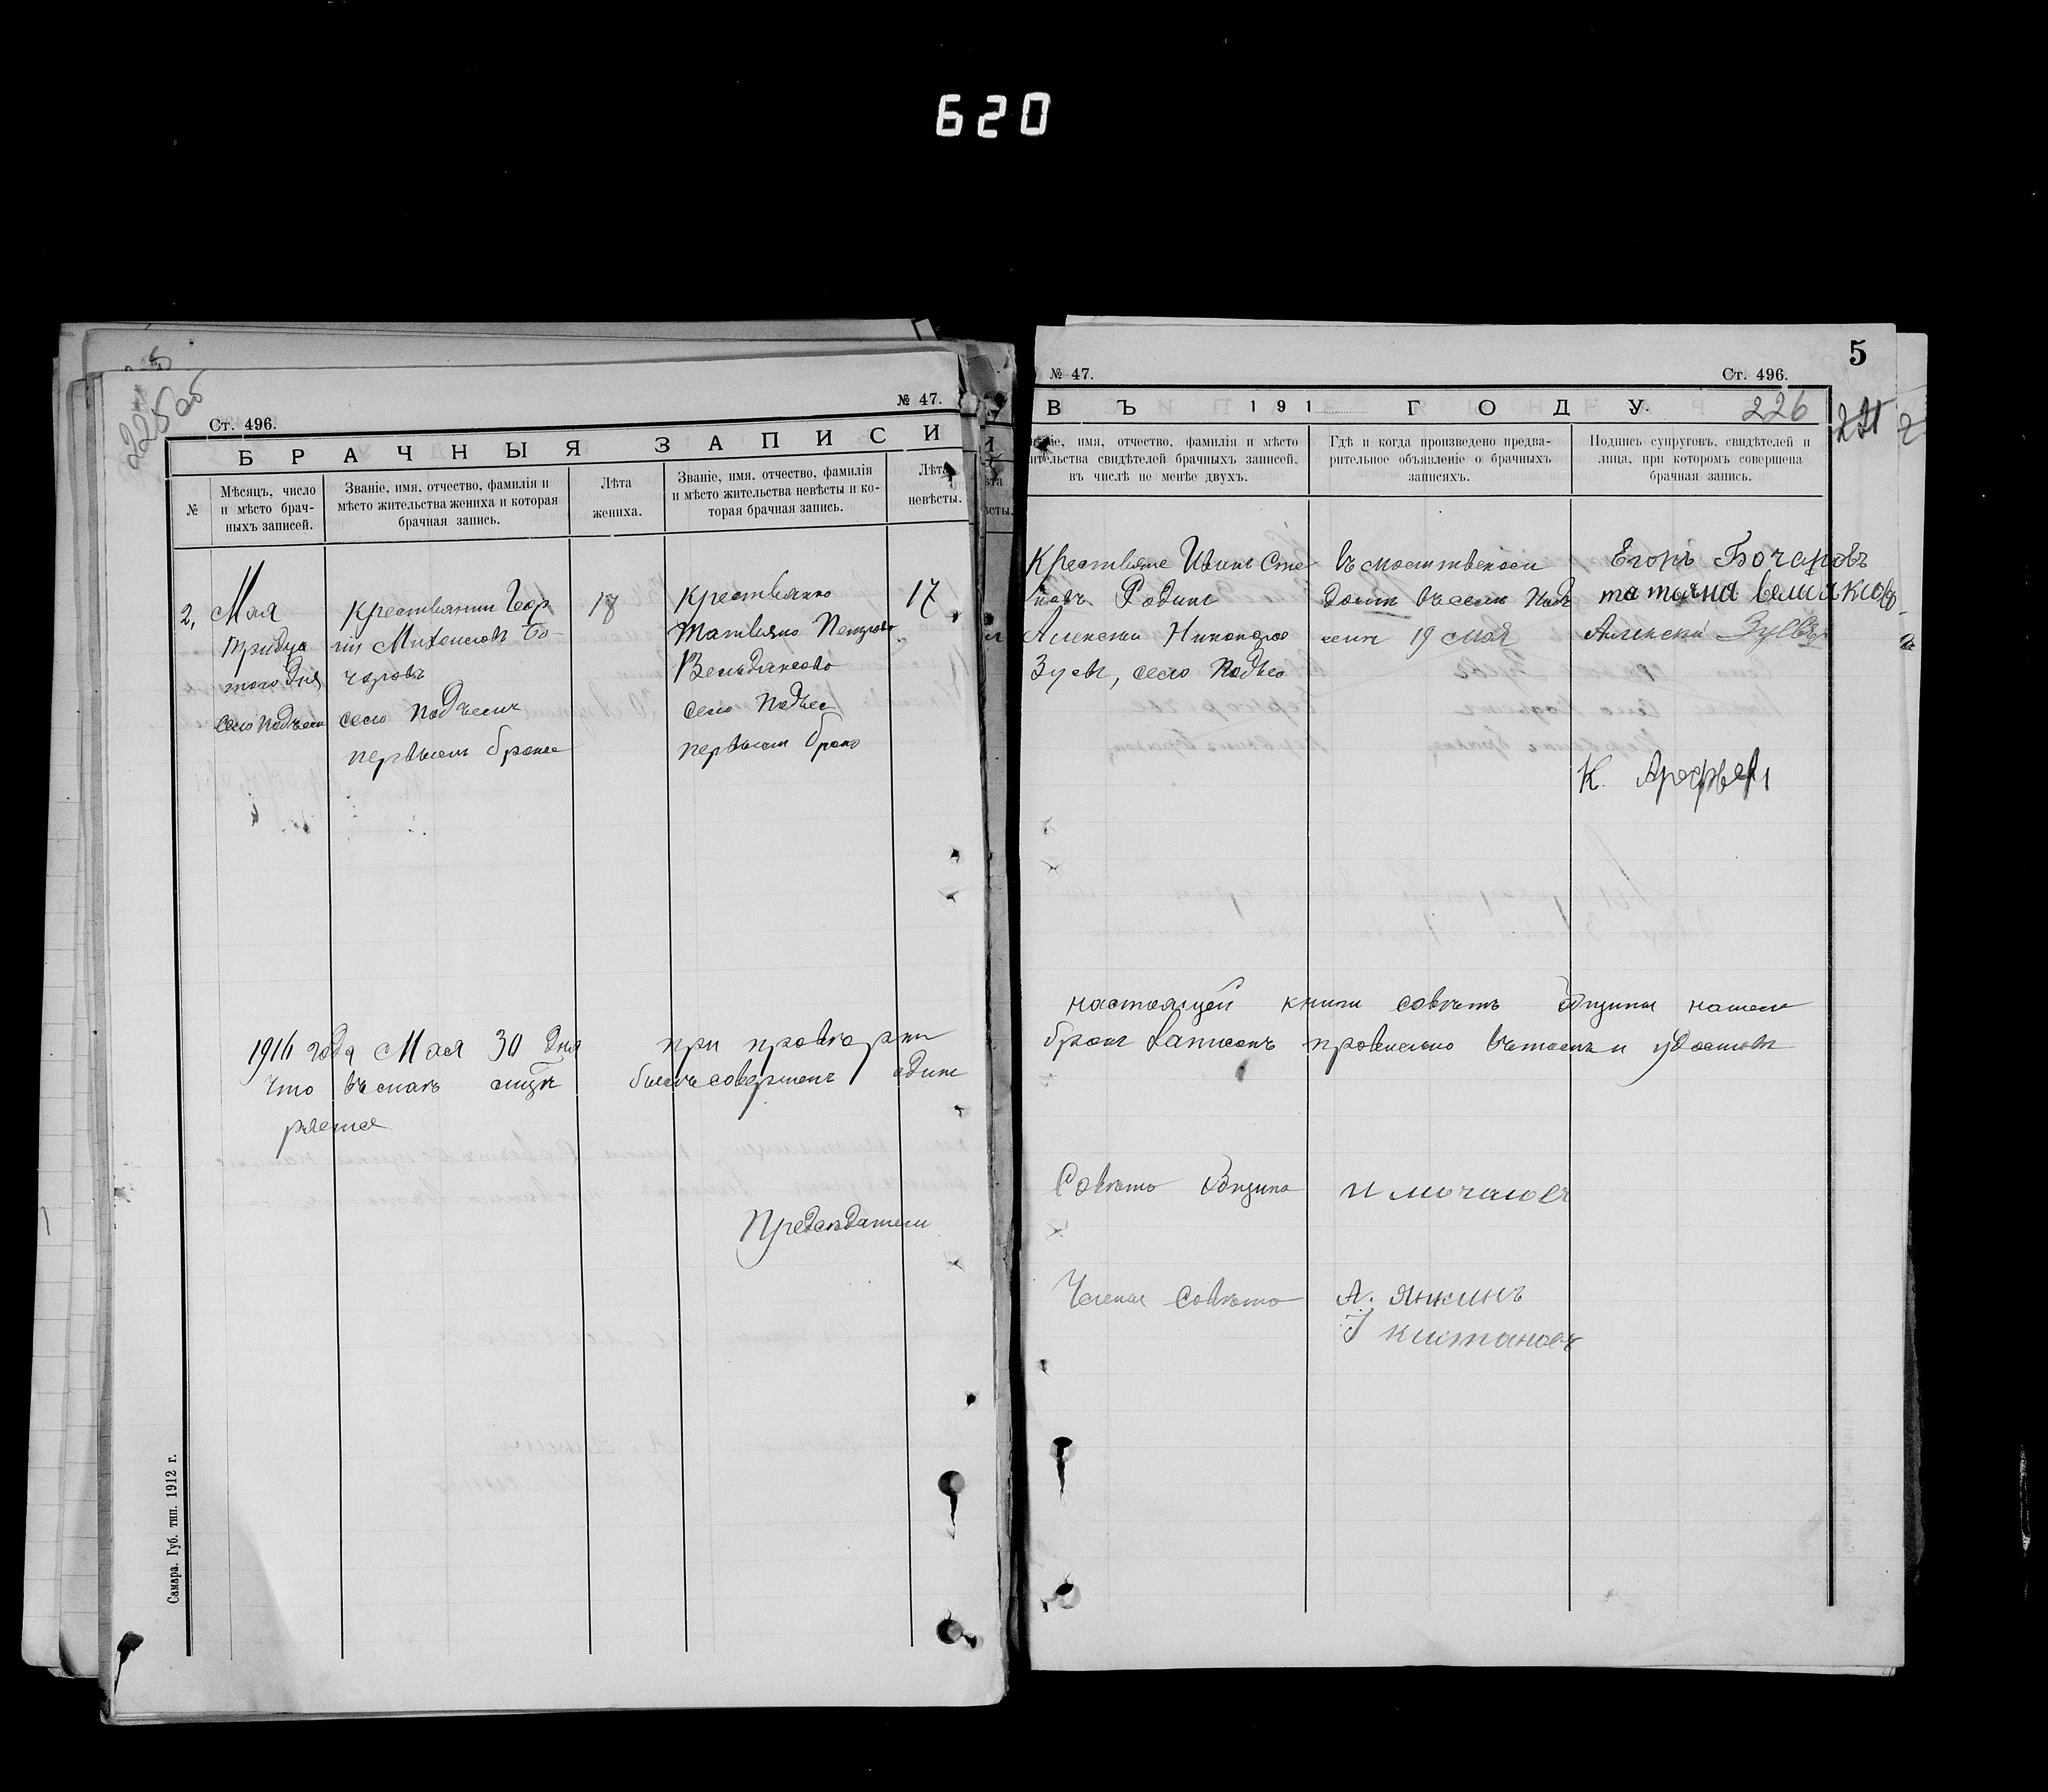 620
225 об
Ст. 496.
№ 47.
БРАЧНЫЯ ЗАПИСИ
№
Мѣсяцъ, число
и мѣсто брач-
ныхъ записей.
Званіе, имя, отчество, фамилія и
мѣсто жительства жениха и которая
брачная запись.
Лѣта
жениха.
Званіе, имя, отчество, фамилія
и мѣсто жительства невѣсты и ко-
торая брачная запись.
Лѣта
невѣсты.
2,
Мая
тридца
того дня
село Подъем
Крестьянин Геор
гій Михеилов Бо-
чаровъ
село Подъемъ
первыем браке
18
Крестьянка
Татьяна Петрова
Вельдяксова
село Подъем
первыем брако
17
1916 года Мая 30 дня при проверки
что въ мае былъ совершен один
ряется
Председатели
Самара. Губ. тип. 1912 г.
5
№ 47.
Ст. 496.
ВЪ 191 ГОДУ.
226
имя, отчество, фамилія и мѣсто
жительства свидѣтелей брачныхъ записей,
въ числѣ не менѣе двухъ.
Гдѣ и когда произведено предва-
рительное объявленіе о брачныхъ
записяхъ.
Подпись супруговъ, свидѣтелей и
лица, при которомъ совершена
брачная запись.
Крестьяне Иван Сте
пновъ Родин
Алексей Никандров
Зуев, село Подъем
въ молитвеном
доми въ селе Подъ
еми 19 мая
Егоръ Бочаровъ
татьяна
Алексей Зуевъ
К.
настоящей книги советъ общины нашел
брак записонъ провильно въ томъ и удостове
Совета община
И мочаловъ
Члены Совета
А. Янкинъ